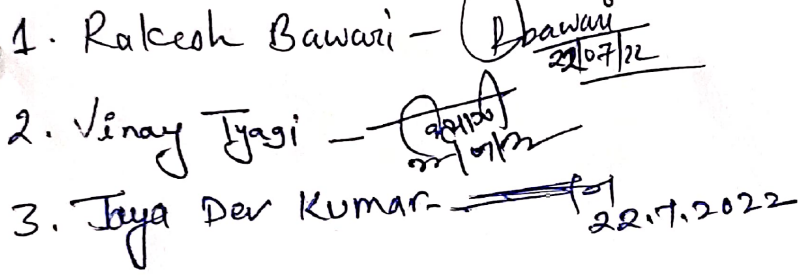 1. Rakesh Bawari - Bbawari
22/07/22
2. Vinay Tyagi -
3. Jaya Dev Kumar-
22.7.2022